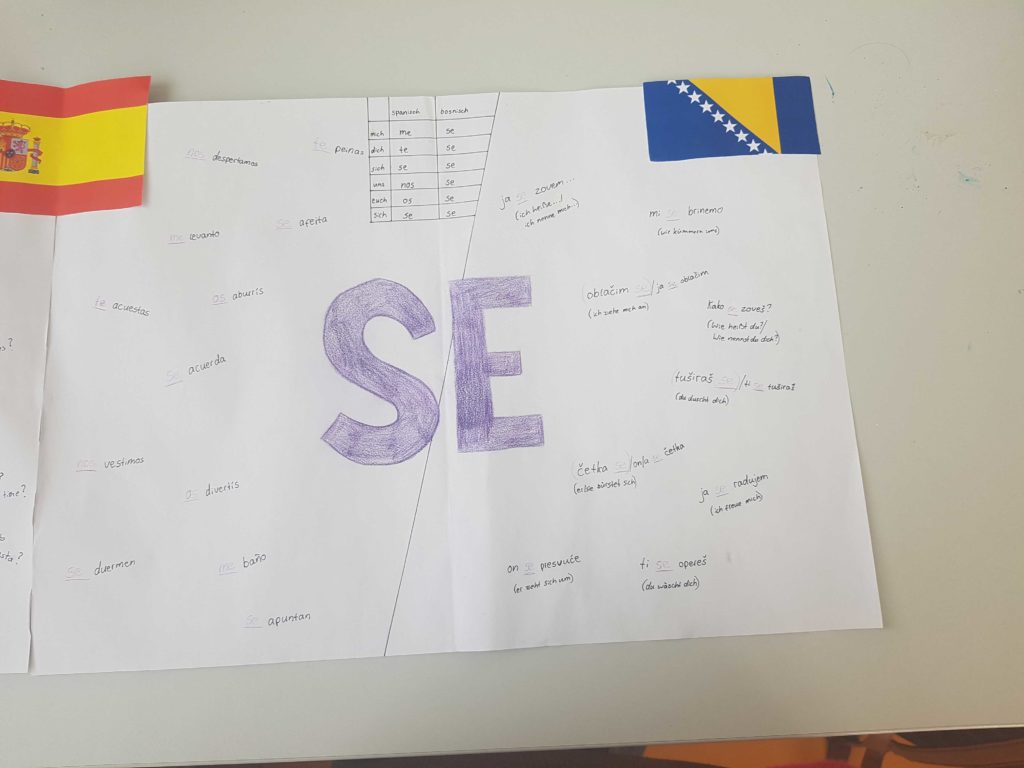 spanisch bosnisch
mich me se
dich te se
sich se se
uns nos se
euch os se
sich se se
SE
nos despertamos
te peinas
me levanto
se afeita
te acuestas
os aburrís
se acuerda
nos vestimos
os divertís
se duermen
me baño
se apuntan
ja se zovem...
(ich heiße.../
ich nenne mich..)
mi se brinemo
(wir kümmern uns)
(oblačim se)/ja se oblačim
(ich ziehe mich an)
Kako se zoveš?
(Wie heißt du?/
Wie nennst du dich?)
(tuširaš se)/ti se tuširaš
(du duscht dich)
(četka se)/on/a se četka
(er/sie bürstet sich)
ja se radujem
(ich freue mich)
on se presvuče
(er zieht sich um)
ti se opereš
(du wäscht dich)